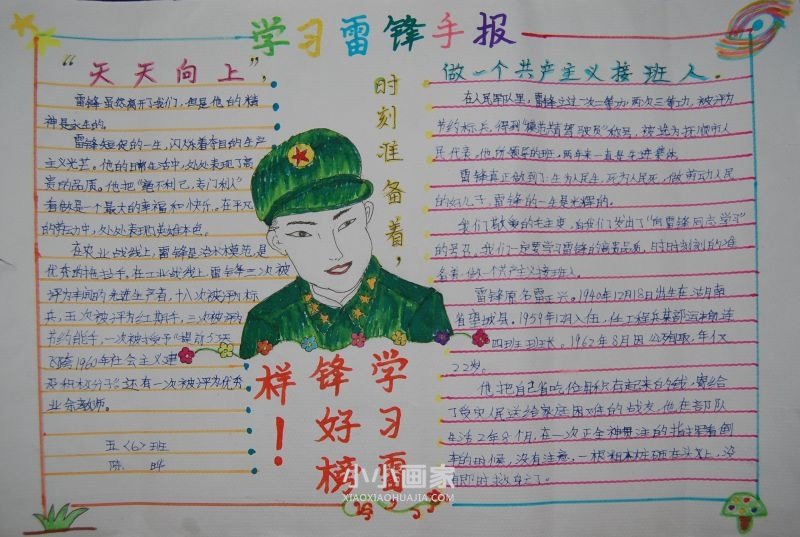 学习雷锋手报
“天天向上”，
雷锋虽然离开了我们，但是他的精
神是永生的。
雷锋短促的一生，闪烁着夺目的共产
主义光芒。他的日常生活中，处处表现了高
贵的品质。他把“毫不利己，专门利人”
看做是一个最大的幸福和快乐。在平凡
的劳动中，处处表现英雄本色。
在农业战线上，雷锋是治水模范，是
优秀的拖拉手，在工业战线上，雷锋三次被
评为车间的先进生产者，十八次被评为标
兵，五次被评为红旗手，三次被评为
节约能手，一次被
飞跨1960年社会主义建
及积极分子。还有一次被评为优秀
业余教师。
五〈6〉班
陈
时刻准备着，
学习雷
锋好榜
样！
做一个共产主义接班人.
在人民军队里，雷锋立过一次二等功，两次三等功，被评为
节约标兵，得到“模范青年驾驶员”称号，被选为抚顺市人
民代表。他所领导的班，两年来一直是先进集体。
雷锋真正做到了：生为人民生，死为人民死，做劳动人民
的好儿子，雷锋的一生是光辉的。
我们敬爱的毛主席，向我们发出了“向雷锋同志学习”
的号召，我们一定要学习雷锋的高贵品质，时时刻刻的准
备着，做一个共产主义接班人。
雷锋原名雷正兴。1940年12月18日出生在湖南
省望城县。1959年12月入伍，任工程兵某部运输连
四班班长。1962年8月因公殉职，年仅
22岁。
他把自己省吃俭用积存起来的钱，寄给
了受灾人民送给家庭困难的战友，他在部队
生活2年8个月，在一次正全神贯注的指挥着倒
车的时候，没有注意，一根粗木桩砸在头上，没
小小画家
XIAOXIAOHUAJIA.COM